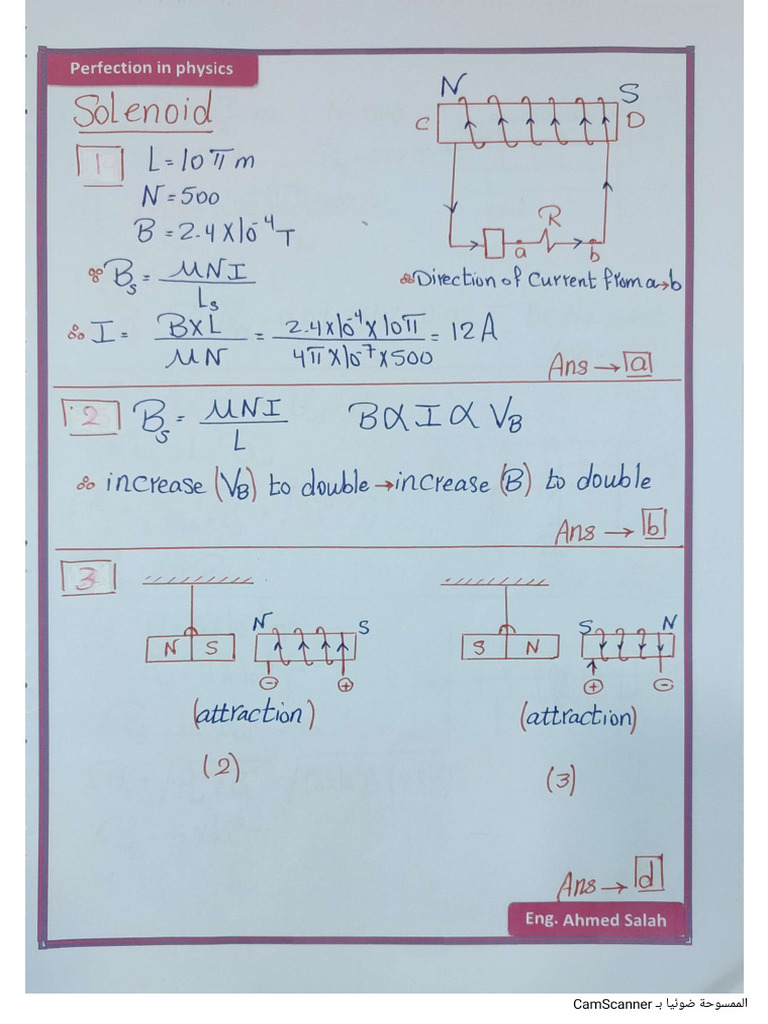 Perfection in physics
Solenoid
N S
C D
R
a b
1 L = 10 π m
N = 500
B = 2.4 X 10⁻⁴ T
∵ Bs = MNI / Ls
∴ Direction of current from a → b
∴ I = B X L / MN = 2.4 X 10⁻⁴ X 10π / 4π X 10⁻⁷ X 500 = 12 A
Ans → a
2 Bs = MNI / L B α I α VB
∴ increase (VB) to double → increase (B) to double
Ans → b
3
N S N S
− +
(attraction)
(2)
S N S N
+ −
(attraction)
(3)
Ans → d
Eng. Ahmed Salah
الممسوحة ضوئيا بـ CamScanner